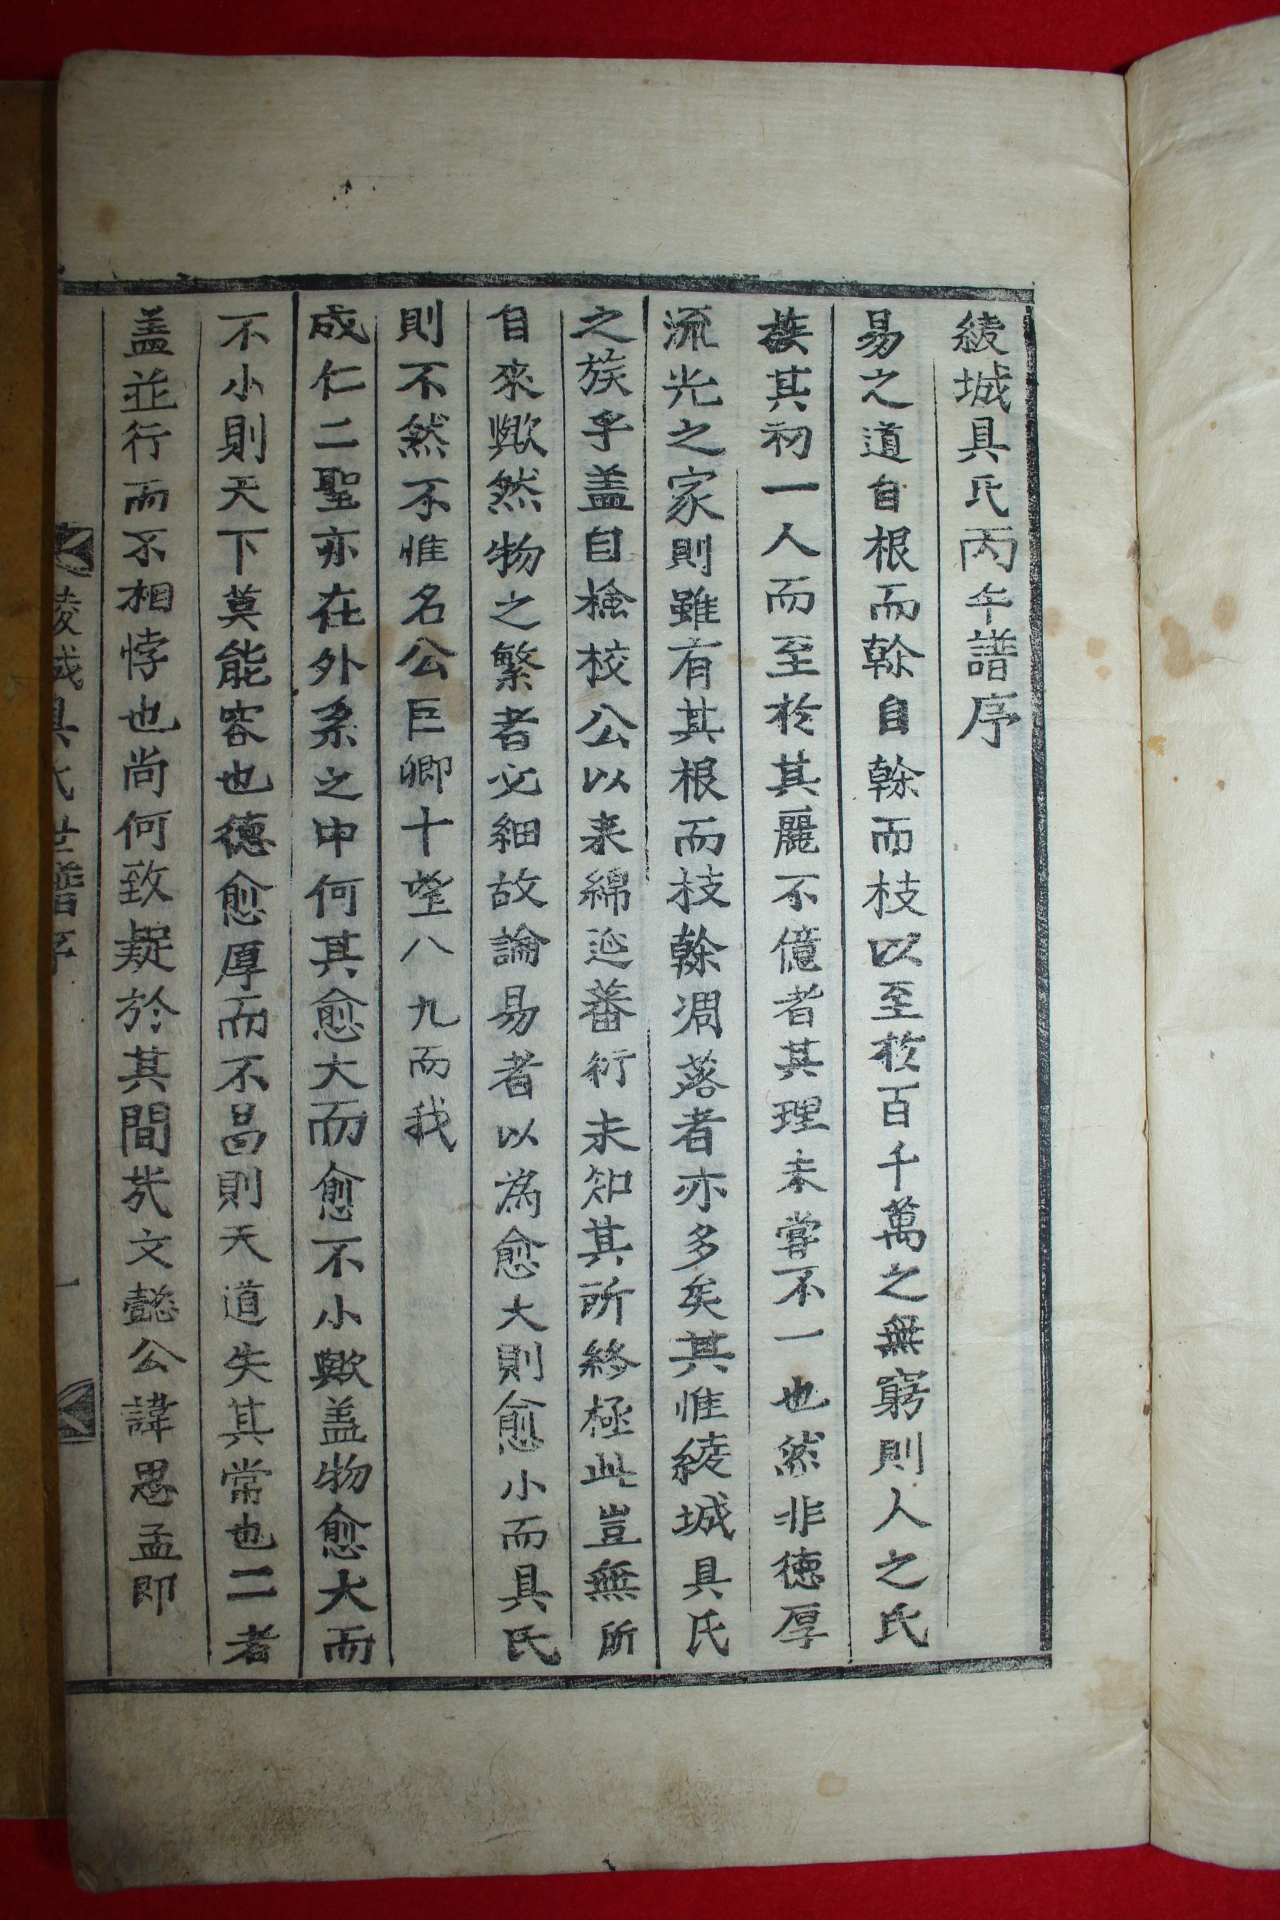 綾城具氏丙午譜序
易之道自根而榦自榦而枝以至於百千萬之無窮則人之氏
族其初一人而至於其麗不億者其理未嘗不一也然非德厚
流光之家則雖有其根而枝榦凋落者亦多矣其惟綾城具氏
之族乎盖自檢校公以来綿迆蕃衍未知其所終極此豈無所
自來歟然物之繁者必細故論易者以為愈大則愈小而具氏
則不然不惟名公巨卿十望八九而我
成仁二聖亦在外系之中何其愈大而愈不小歟盖物愈大而
不小則天下莫能容也德愈厚而不昌則天道失其常也二者
盖並行而不相悖也尚何致疑於其間㦲文懿公諱思孟即
綾城具氏世譜序
一